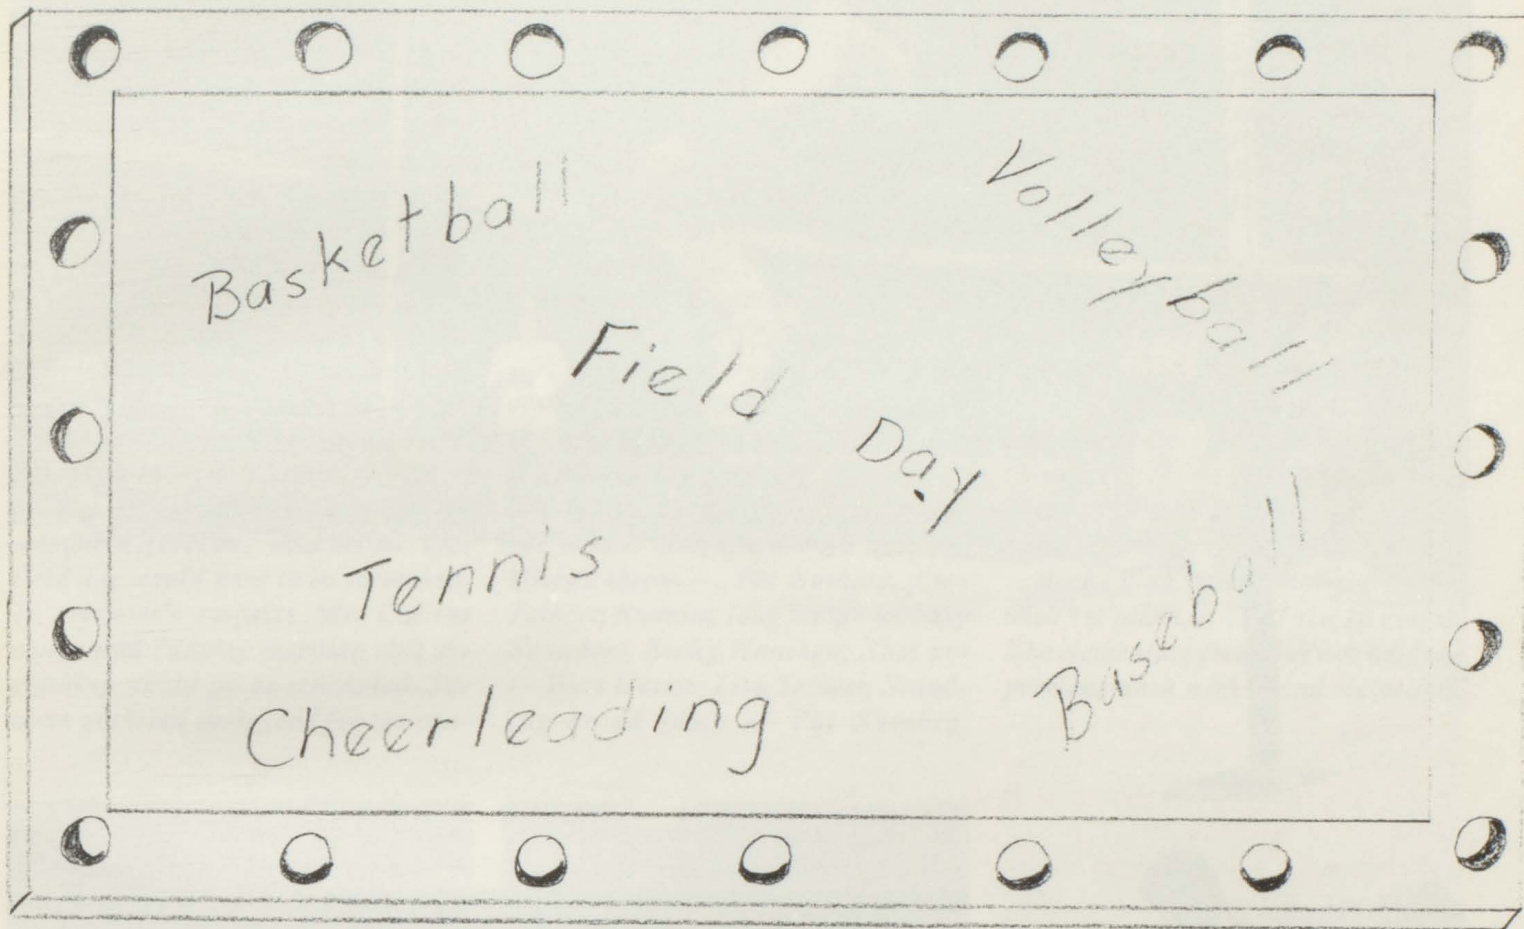 Basketball
Volleyball
Field Day
Tennis
Baseball
Cheerleading